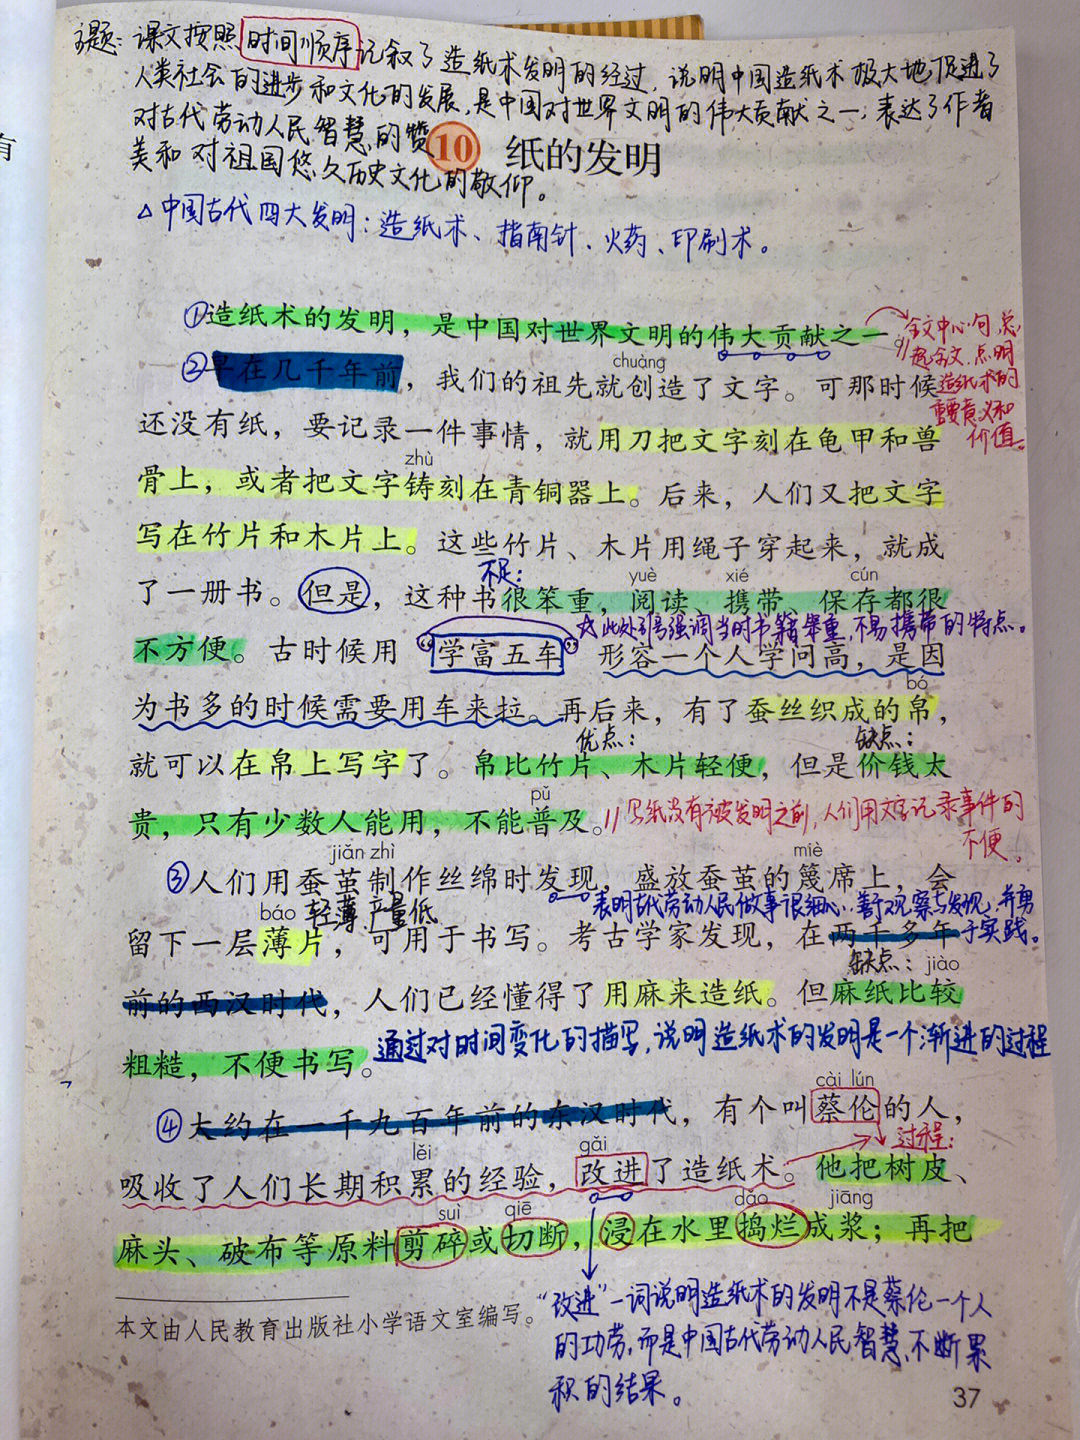 主题：课文按照时间顺序记叙了造纸术发明的经过，说明中国造纸术极大地促进了
人类社会的进步和文化的发展，是中国对世界文明的伟大贡献之一，表达了作者
对古代劳动人民智慧的赞
美和对祖国悠久历史文化的敬仰。
10 纸的发明
△中国古代四大发明：造纸术、指南针、火药、印刷术。
①造纸术的发明，是中国对世界文明的伟大贡献之一。
全文中心句，总
起全文，点明
造纸术的
重要意义和
价值。
chuàng
②早在几千年前，我们的祖先就创造了文字。可那时候
还没有纸，要记录一件事情，就用刀把文字刻在龟甲和兽
zhù
骨上，或者把文字铸刻在青铜器上。后来，人们又把文字
写在竹片和木片上。这些竹片、木片用绳子穿起来，就成
不足：
yuè xié cún
了一册书。但是，这种书很笨重，阅读、携带、保存都很
☆此处引号强调当时书籍笨重，不易携带的特点。
不方便。古时候用“学富五车”形容一个人学问高，是因
bó
为书多的时候需要用车来拉。再后来，有了蚕丝织成的帛，
优点：
缺点：
就可以在帛上写字了。帛比竹片、木片轻便，但是价钱太
pǔ
贵，只有少数人能用，不能普及。
//写纸没有被发明之前，人们用文字记录事件的
不便。
jiǎn zhì miè
③人们用蚕茧制作丝绵时发现，盛放蚕茧的篾席上，会
表明古代劳动人民做事很细心，善于观察与发现，并勇
于实践。
báo
轻薄 产量低
留下一层薄片，可用于书写。考古学家发现，在两千多年
缺点：
jiào
前的西汉时代，人们已经懂得了用麻来造纸。但麻纸比较
粗糙，不便书写。
通过对时间变化的描写，说明造纸术的发明是一个渐进的过程
cài lún
④大约在一千九百年前的东汉时代，有个叫蔡伦的人，
过程：
lěi gǎi
吸收了人们长期积累的经验，改进了造纸术。他把树皮、
suì qiē dǎo jiāng
麻头、破布等原料剪碎或切断，浸在水里捣烂成浆；再把
“改进”一词说明造纸术的发明不是蔡伦一个人
的功劳，而是中国古代劳动人民智慧，不断累
积的结果。
本文由人民教育出版社小学语文室编写。
37